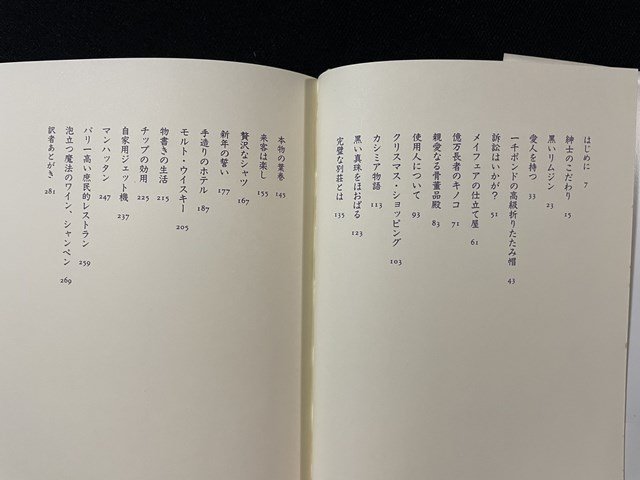 はじめに 7
紳士のこだわり 15
黒いリムジン 23
愛人を持つ 33
一千ポンドの高級折りたたみ帽 43
訴訟はいかが? 51
メイフェアの仕立て屋 61
億万長者のキノコ 71
親愛なる骨董品殿 83
使用人について 93
クリスマス・ショッピング 103
カシミア物語 113
黒い真珠をほおばる 123
完璧な別荘とは 135
本物の葉巻 145
来客は楽し 155
贅沢なシャツ 167
新年の誓い 177
手造りのホテル 187
モルト・ウイスキー 205
物書きの生活 215
チップの効用 225
自家用ジェット機 237
マンハッタン 247
パリ一高い庶民的レストラン 259
泡立つ魔法のワイン、シャンペン 269
訳者あとがき 281